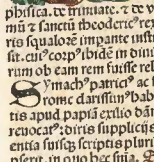 phisica. de trinitate. ⁊ de
mũ ⁊ sanctũ theodericꝰ rex
ris squalore impante iust
sit. cuiꝰ corpꝰ ibidẽ in diui
rum ob eam rem fuisse rel
Symachꝰ patriciꝰ ac
rome clarissimꝰ hab
tis apud papiã exilio dã
reuocat᷑: diris supplicijs
entia suisq̃ scriptis plur